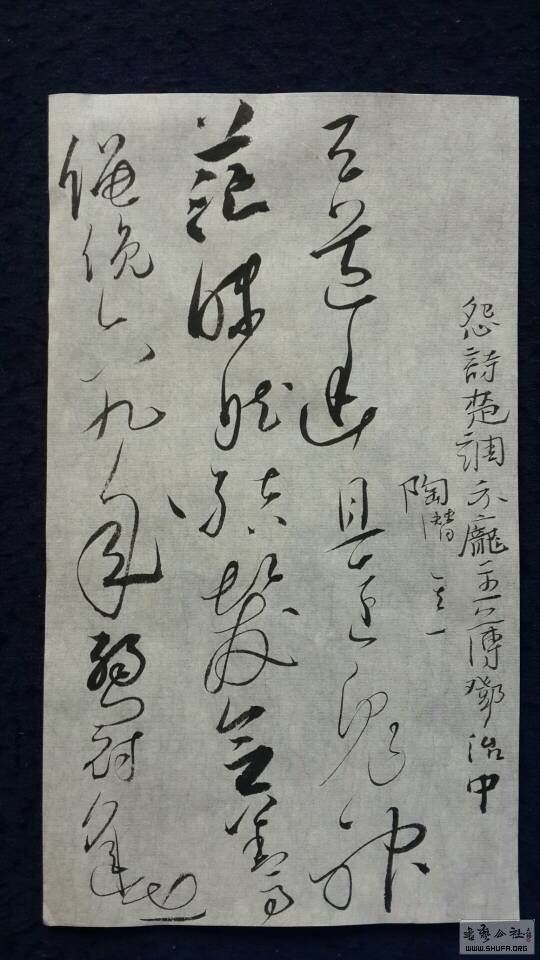 怨詩楚調示龐主簿鄧治中
陶潛 其一
天道幽且遠鬼神
茫昧然結髮念善事
僶俛六九年弱冠逢世
书艺公社
WWW.SHUFA.ORG